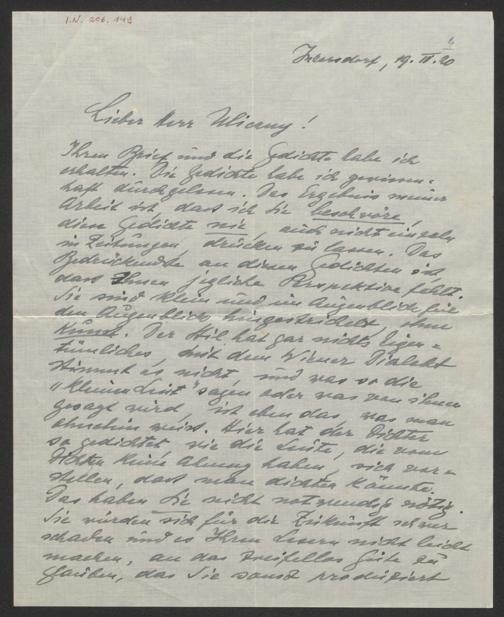 I.N. 206.149
Inzersdorf, 19. IV. 20
Lieber Herr Wieany!
Ihren Brief und die Gedichte habe ich
erhalten. Die Gedichte habe ich gewissen-
haft durchgelesen. Das Ergebnis meiner
Arbeit ist, dass ich Sie beschwöre,
diese Gedichte nie, auch nicht einzeln
in Zeitungen, drucken zu lassen. Das
Bedrückende an diesen Gedichten ist,
dass Ihnen jegliche Perspektive fehlt.
Sie sind klein und im Augenblick für
den Augenblick hingestrichelt, ohne
Kunst. Der Stil hat gar nichts Eigen-
tümliches, mit dem Wiener Dialekt
stimmt es nicht und was so die
"kleinen Leut" sagen oder was von ihnen
gesagt wird, ist eben das, was man
ohnehin weiss. Hier hat der Dichter
so gedichtet wie die Leute, die vom
Dichten keine Ahnung haben, sich vor-
stellen, dass man dichten könnte.
Das haben Sie nicht notwendig nötig.
Sie würden sich für die Zukunft schwer
schaden und es Ihren Lesern nicht leicht
machen, an das zweifellos Gute zu
glauben, das Sie sonst produziert